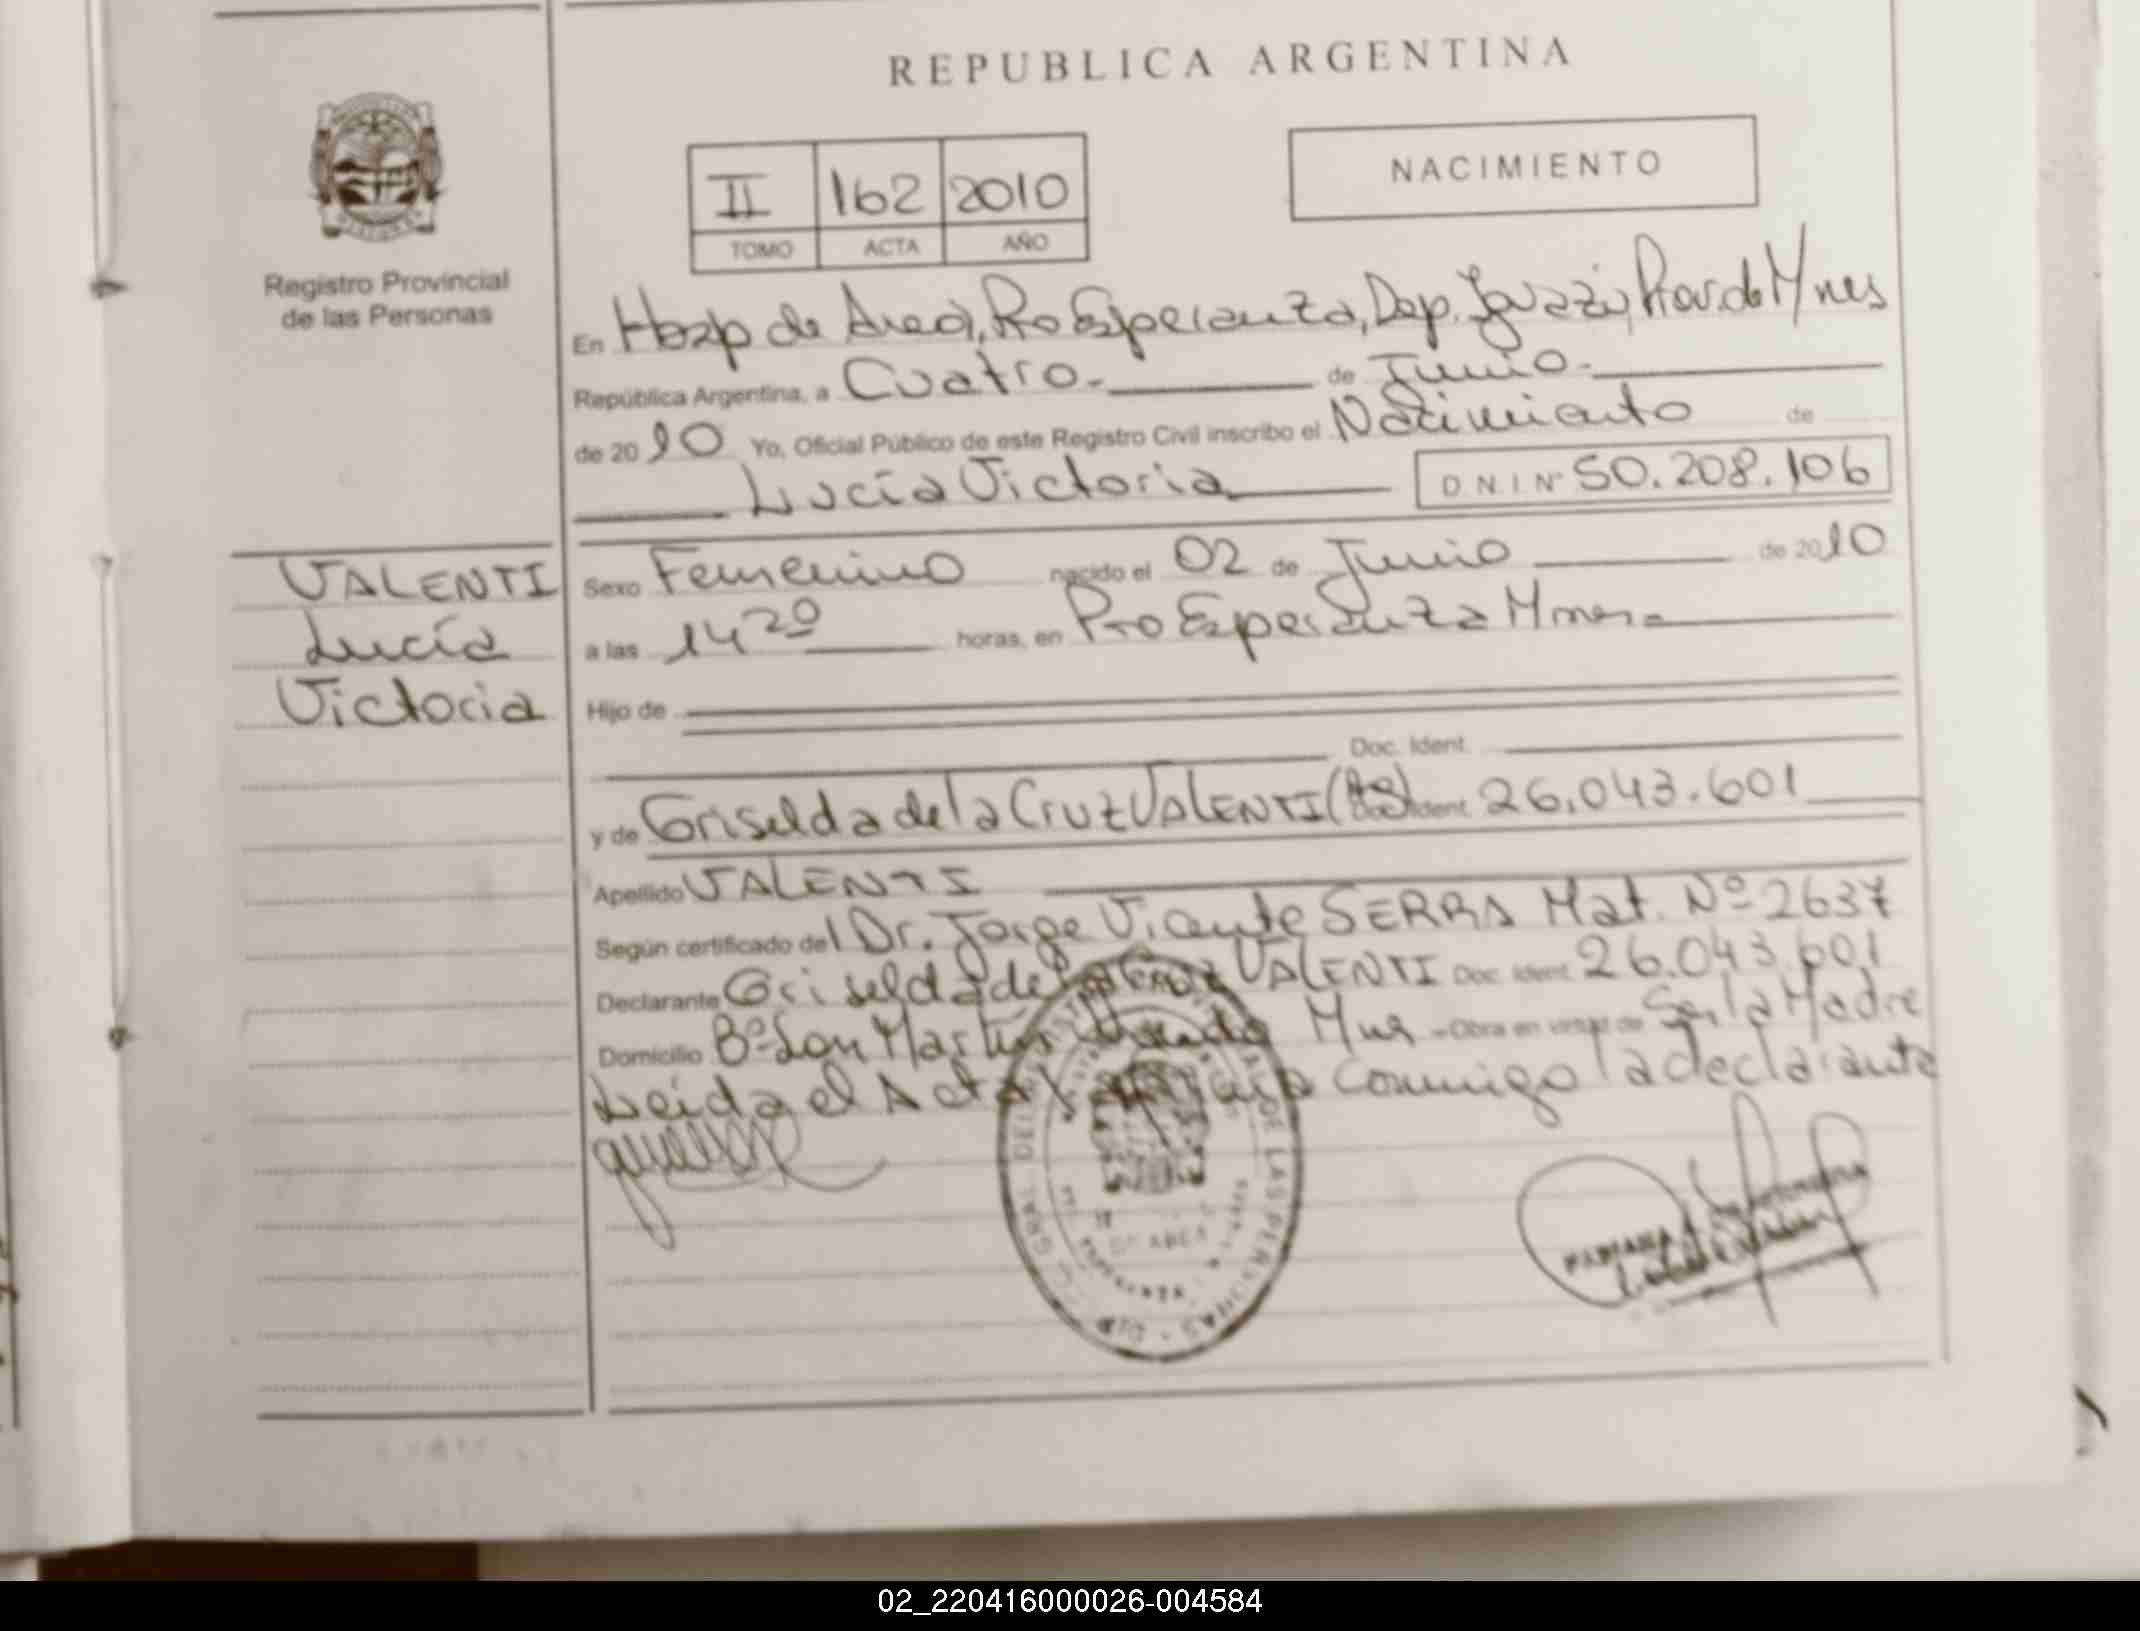 REPUBLICA ARGENTINA
NACIMIENTO
II 162 2010
TOMO ACTA AÑO
Registro Provincial
de las Personas
En Hosp de Area, Pto Esperanza, Dep. Iguazú, Prov. de Mnes
República Argentina, a Cuatro.- de Junio.-
de 2010 Yo, Oficial Público de este Registro Civil inscribo el Nacimiento de
Lucía Victoria D N I Nº 50.208.106
VALENTI
Lucía
Victoria
Sexo Femenino nacido el 02 de Junio de 2010
a las 14 20 horas, en Pto Esperanza Mnes.-
Hijo de
Doc. Ident.
y de Griselda de la Cruz VALENTI (Ag) Doc. Ident. 26.043.601
Apellido VALENTI
Según certificado del Dr. Jorge Vicente SERRA Mat. Nº 2637
Declarante Griselda de la Cruz VALENTI Doc. Ident. 26.043.601
Domicilio Bº San Martín Mnes - Obra en virtud de Ser la Madre
Leida el Acta conmigo la declarante
DE LAS PERSONAS
02_220416000026-004584